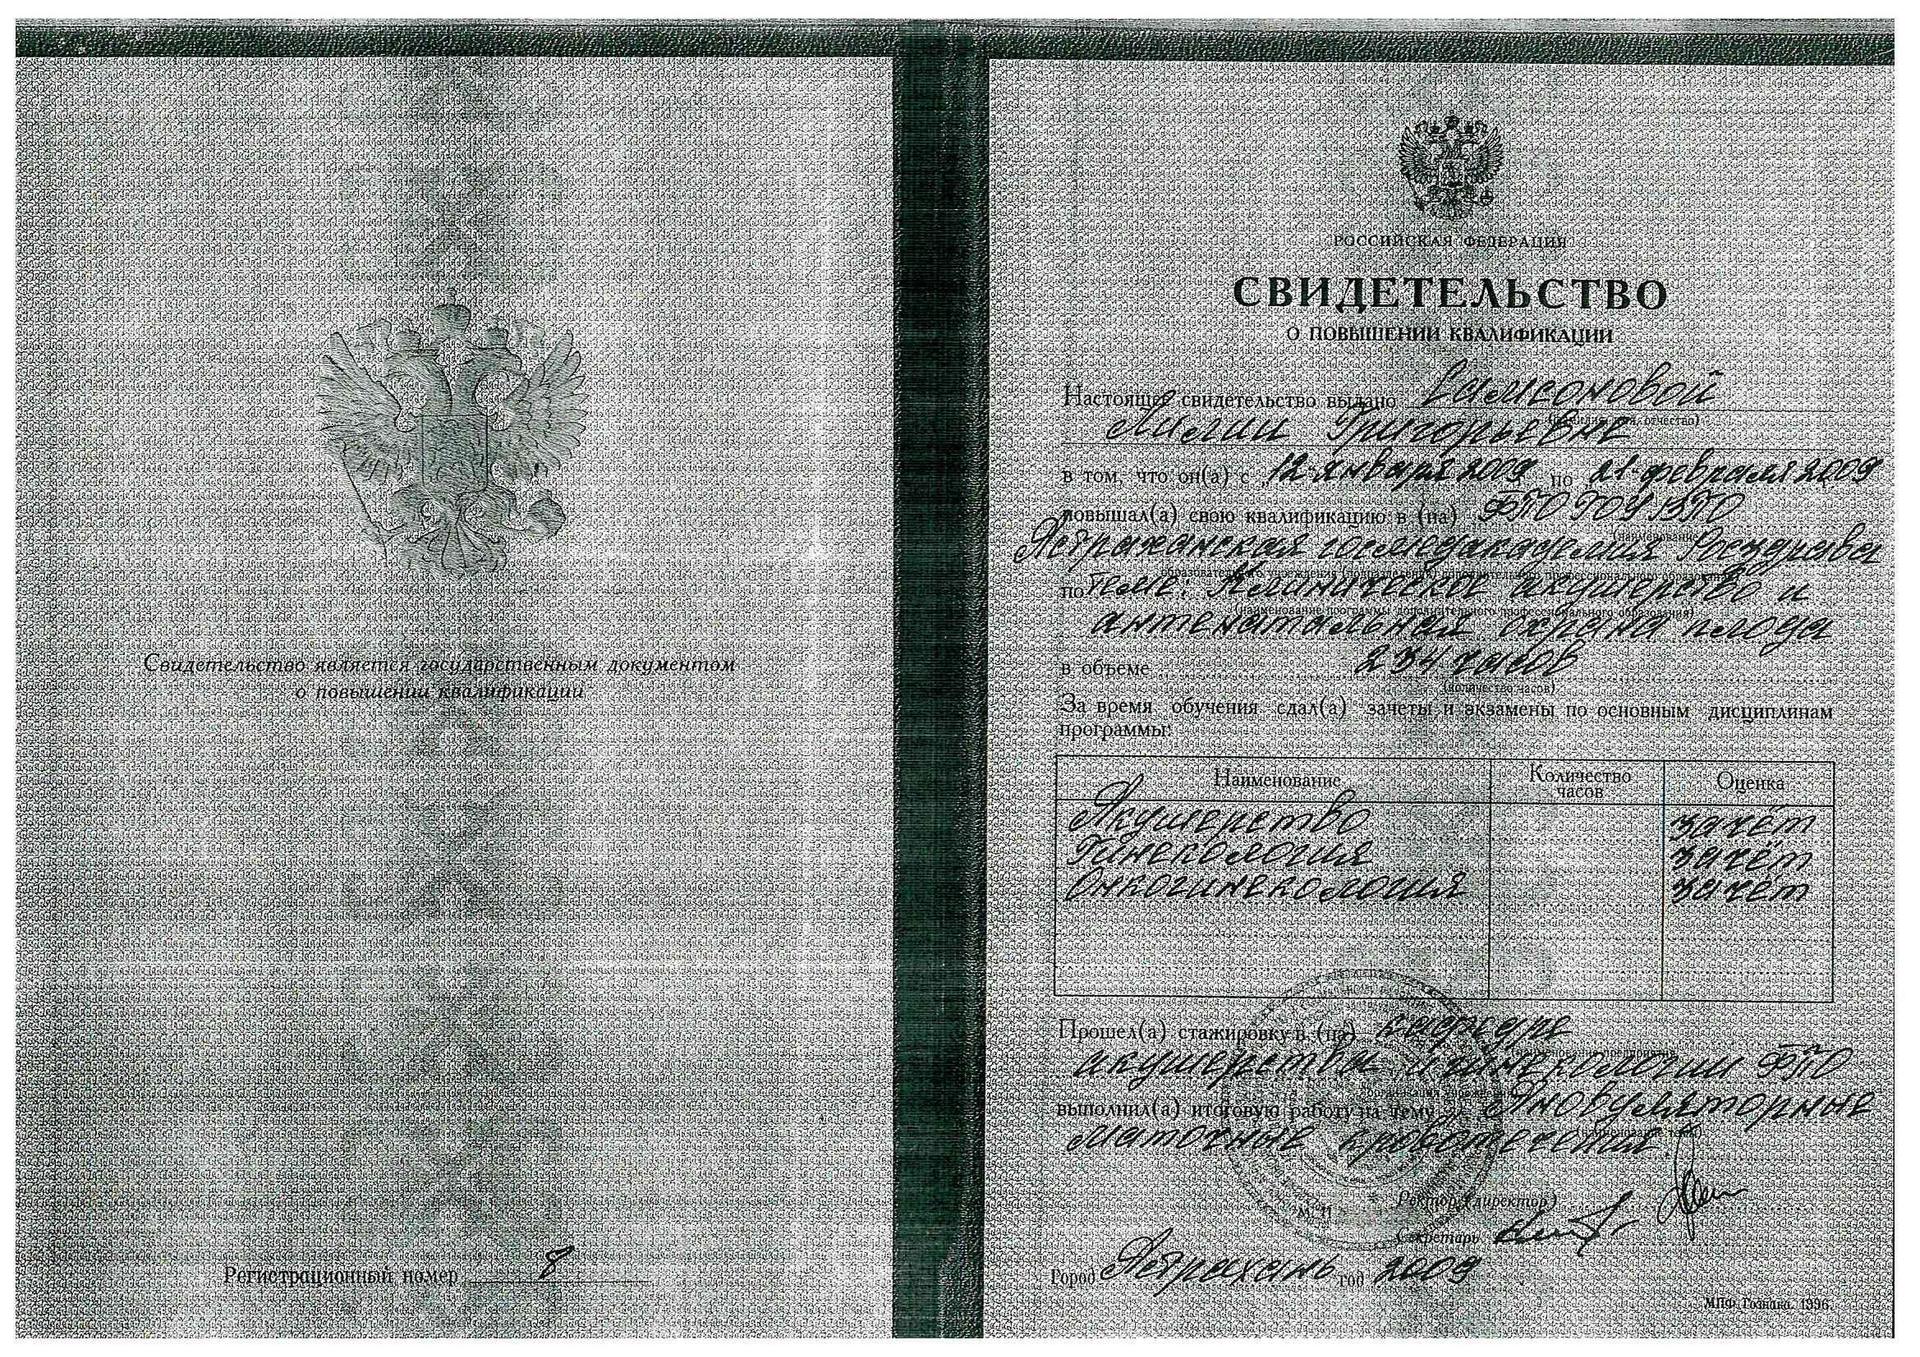 Свидетельство является государственным документом
о повышении квалификации
Регистрационный номер 8
РОССИЙСКАЯ ФЕДЕРАЦИЯ
СВИДЕТЕЛЬСТВО
О ПОВЫШЕНИИ КВАЛИФИКАЦИИ
Настоящее свидетельство выдано Самсоновой
Лилии Григорьевне
в том, что он(а) с „12 января 2009 по 21 февраля 2009
повышал(а) свою квалификацию в (на) ФПО ГОУ ВПО
(наименование
Астраханская госмедакадемия Росздрава
образовательного учреждения (подразделения) дополнительного профессионального образования)
по теме: Клиническое акушерство и
(наименование программы дополнительного профессионального образования)
антенатальная охрана плода
в объеме 234 часов
(количество часов)
За время обучения сдал(а) зачеты и экзамены по основным дисциплинам
программы:
Наименование Количество часов Оценка
Акушерство зачёт
Гинекология зачёт
Онкогинекология зачёт
Прошел(а) стажировку в (на) кафедре
акушерства и гинекологии ФПО
выполнил(а) итоговую работу на тему: Ановуляторные
маточные кровотечения
Ректор (директор)
Секретарь
Город Астрахань год 2009
МПФ Гознака. 1996.